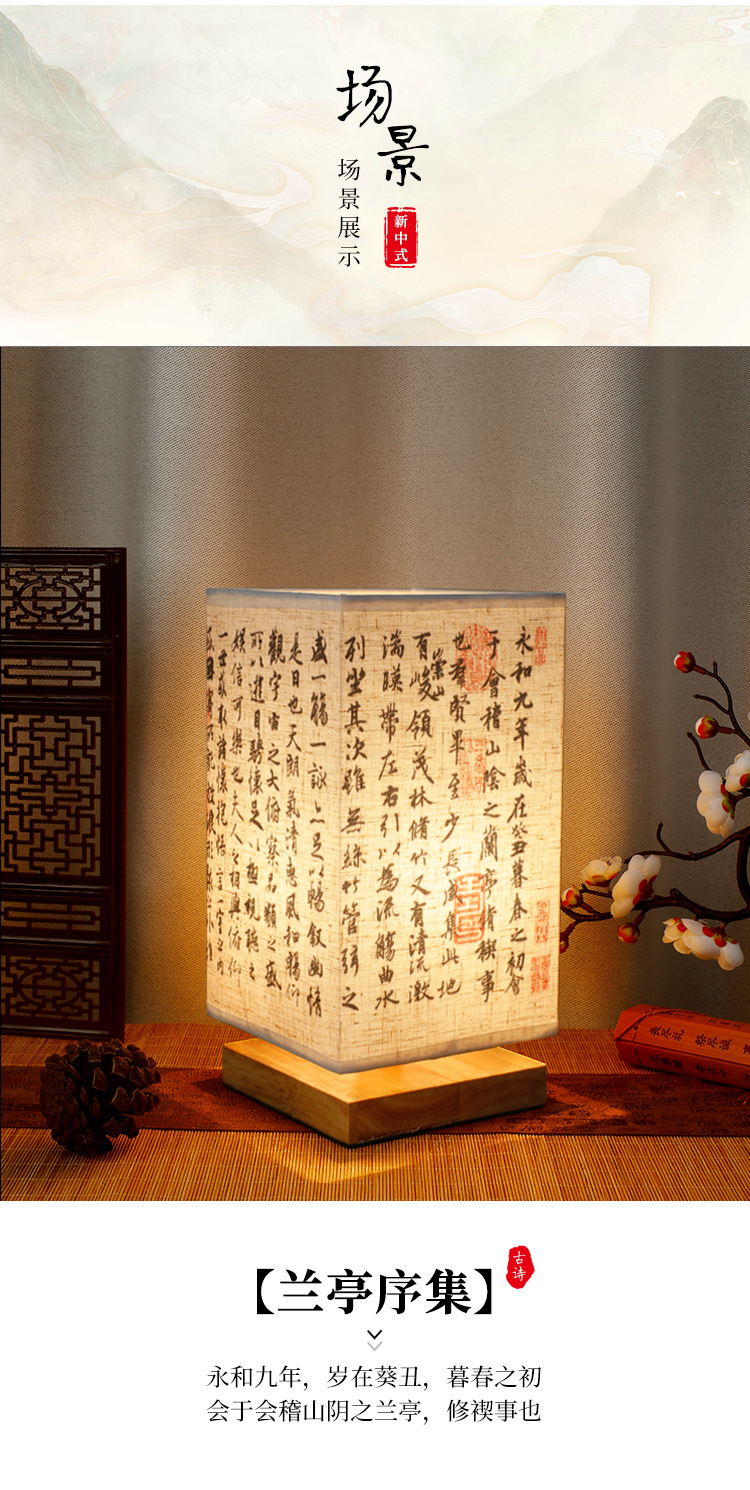 场景
场景展示
新中式
永和九年歲在癸丑暮春之初會
于會稽山陰之蘭亭脩稧事
也群賢畢至少長咸集此地
有崇山峻領茂林脩竹又有清流激
湍暎帶左右引以為流觴曲水
列坐其次雖無絲竹管弦之
盛一觴一詠亦足以暢叙幽情
是日也天朗氣清惠風和暢仰
觀宇宙之大俯察品類之盛
所以遊目騁懷足以極視聽之
娛信可樂也夫人之相與俯仰
一世或取諸懷抱悟言一室之內
【兰亭序集】
古诗
永和九年，岁在葵丑，暮春之初
会于会稽山阴之兰亭，修禊事也